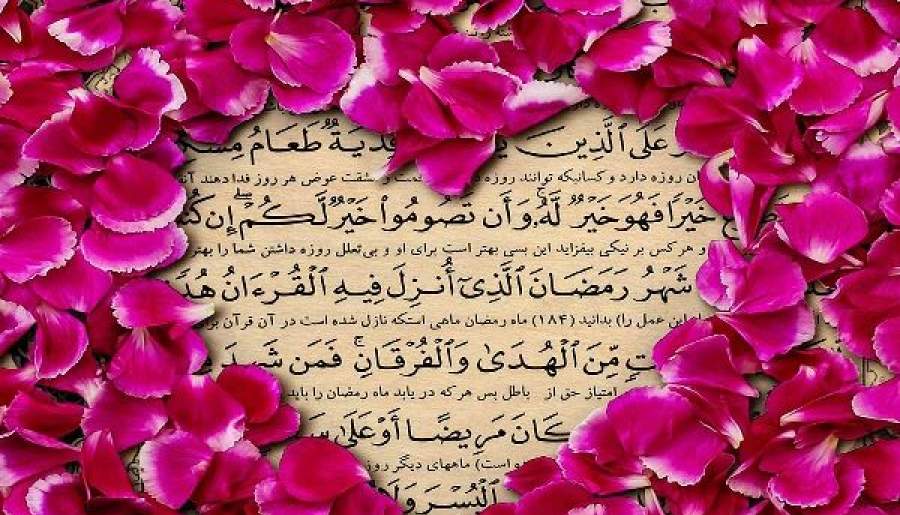 عَلَى ٱلَّذِينَ فِدْيَةٌ طَعَامُ
روزه دارد و کسانیکه توانند روزه مشقت عوض هر روز فدا دهند
خَيْرًا فَهُوَ خَيْرٌ لَّهُۥ وَأَن تَصُومُوا۟ خَيْرٌ لَّكُمْ ۖ إِن
و هر کس بر نیکی بیفزاید این بسی بهتر است برای او و بی‌تعلل روزه داشتن شما را بهتر
شَهْرُ رَمَضَانَ ٱلَّذِىٓ أُنزِلَ فِيهِ ٱلْقُرْءَانُ
این عمل را) بدانید (۱۸۴) ماه رمضان ماهی استکه نازل شده است در آن قرآن
مِّنَ ٱلْهُدَىٰ وَٱلْفُرْقَانِ ۚ فَمَن
امتیاز حق از باطل پس هر که در یابد ماه رمضان را باید
كَانَ مَرِيضًا أَوْ عَلَىٰ
است) ماههای دیگر
ٱلْيُسْرَ